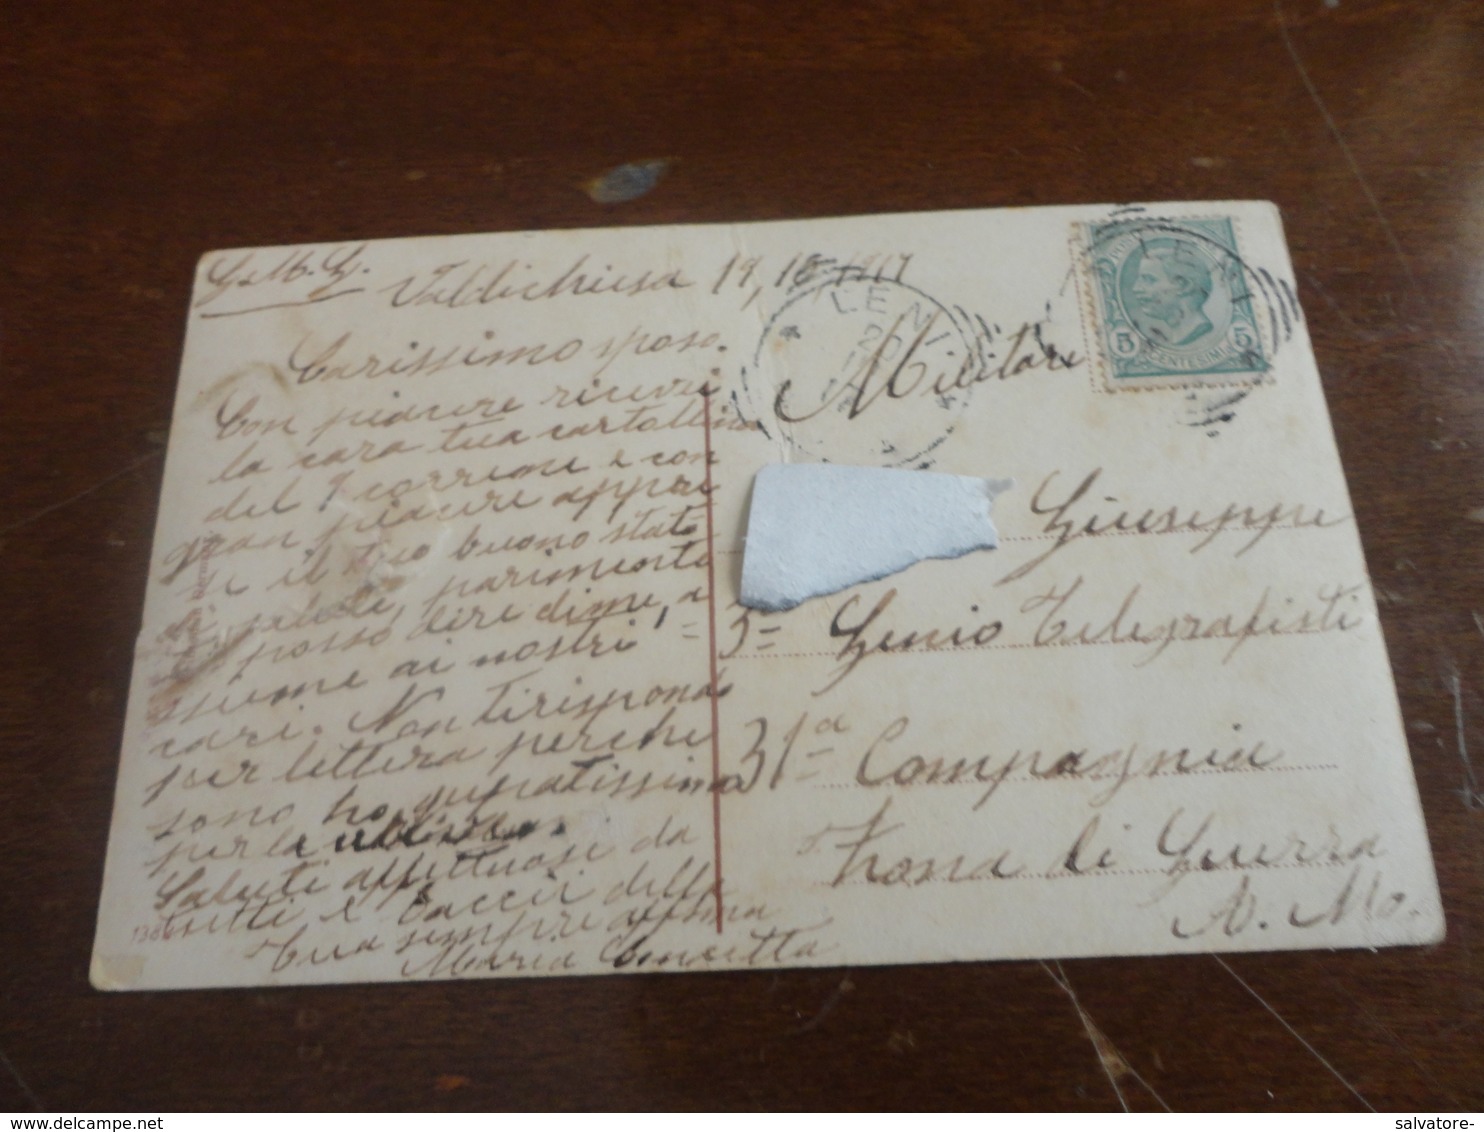 G. M. G.
Valdichiesa 19, 10 1917
Carissimo sposo.
Con piacere ricevei
la cara tua cartollina
del 9 corrente e con
gran piacere appre
si il tuo buono stato
salute, parimento
posso dire di me, a
ssieme ai nostri
cari. Non ti rispondo
per lettera perche
sono
per la
Saluti affettuosi da
tutti e baccii della
tua sempre affma
Maria Concetta
LENI
20
LENI
POSTE
5 CENTESIMI 5
Militare
Giuseppe
3= Genio Telegrafisti
31a Compagnia
Zona di Guerra
136
salvatore-